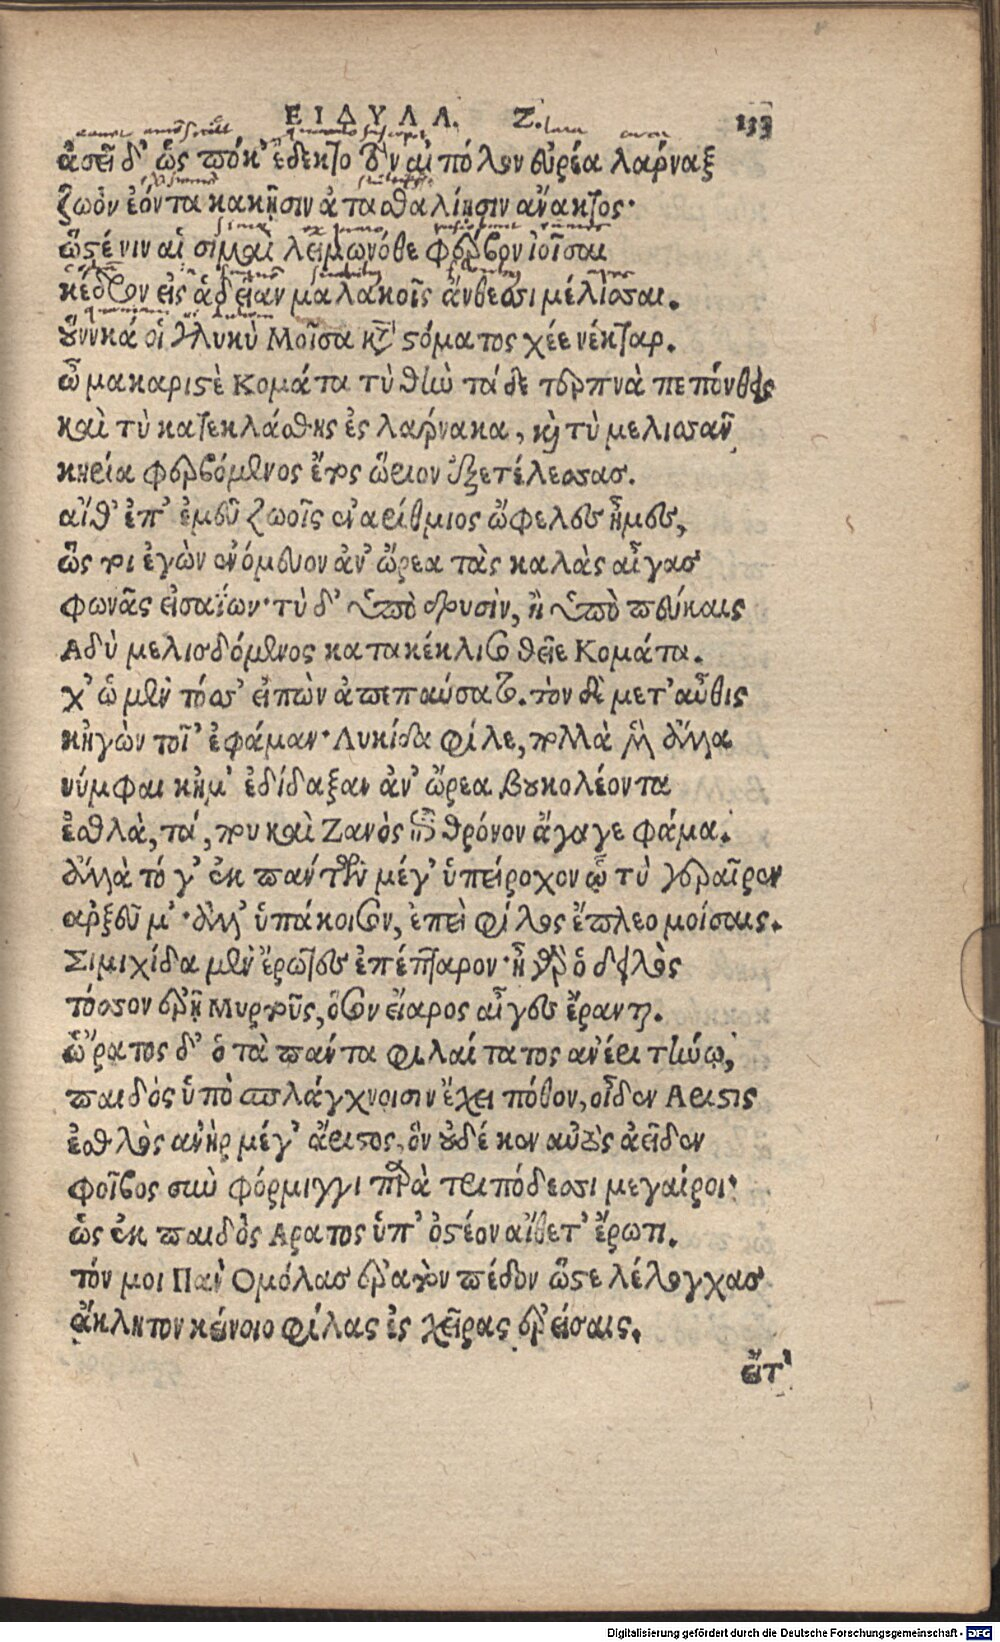 ΕΙΔΥΛΛ. Ζ. 133
ἀσεῖ δ' ὥς ποκ' ἔδεκτο τὸν αἰπόλον εὐρέα λάρναξ
ζωὸν ἐόντα κακῇσιν ἀτασθαλίῃσιν ἄνακτος·
ὥς τέ νιν αἱ σιμαὶ λειμωνόθε φέρβον ἰοῖσαι
κέδρον εἰς ἁδεῖαν μαλακοῖς ἄνθεσσι μέλισσαι.
οὕνεκά οἱ γλυκὺ Μοῖσα κατὰ στόματος χέε νέκταρ.
ὦ μακαριστὲ Κομάτα τὺ θὴν τάδε τερπνὰ πεπόνθεις
καὶ τὺ κατεκλάσθης ἐς λάρνακα, καὶ τὺ μελισσᾶν
κηρία φερβόμενος ἔτος ὥριον ἐξετέλεσσας.
αἴθ' ἐπ' ἐμεῦ ζωοῖς ἐναρίθμιος ὤφελες ἦμες,
ὥς τοι ἐγὼν ἐνόμευον ἀν' ὤρεα τὰς καλὰς αἶγας
φωνᾶς εἰσαΐων· τὺ δ' ὑπὸ δρυσὶν, ἢ ὑπὸ πεύκαις
Αδὺ μελισδόμενος κατακέκλισο θεῖε Κομάτα.
χ' ὡ μὲν τόσσ' εἰπὼν ἀπεπαύσατο. τὸν δὲ μετ' αὖθις
κἠγὼν τοῖ' ἐφάμαν· Λυκίδα φίλε, πολλὰ μὲν ἄλλα
νύμφαι κἠμ' ἐδίδαξαν ἀν' ὤρεα βουκολέοντα
ἐσθλὰ, τά, που καὶ Ζανὸς ἐπὶ θρόνον ἄγαγε φάμα.
ἀλλὰ τό γ' ἐκ πάντων μέγ' ὑπείροχον ᾧ τὺ γεραῖρεν
αρξεῦ μ'· ἀλλ' ὑπάκοισον, ἐπεὶ φίλος ἔπλεο μοίσαις.
Σιμιχίδα μὲν ἔρωτες ἐπέπταρον· ἦ γὰρ ὁ δειλὸς
τόσσον ἐρῇ Μυρτοῦς, ὅσον εἴαρος αἶγες ἔρανται.
ὥρατος δ' ὁ τὰ πάντα φιλαίτατος ανέρι τήνῳ,
παιδὸς ὑπὸ σπλάγχνοισιν ἔχει πόθον, οἶδεν Αριστις
ἐσθλὸς ανὴρ μέγ' ἄριστος, ὃν οὐδέ κεν αὐτὸς ἀείδεν
φοῖβος σὺν φόρμιγγι παρὰ τριπόδεσσι μεγαίροι·
ὡς ἐκ παιδὸς Αρατος ὑπ' ὀστέον αἴθετ' ἔρωτι.
τόν μοι Πὰν Ομόλας ἐρατὸν πέδον ὥστε λέλογχας
ἄκλητον κείνοιο φίλας ἐς χεῖρας ἐρείσαις.
εἴτ'
Digitalisierung gefördert durch die Deutsche Forschungsgemeinschaft - DFG